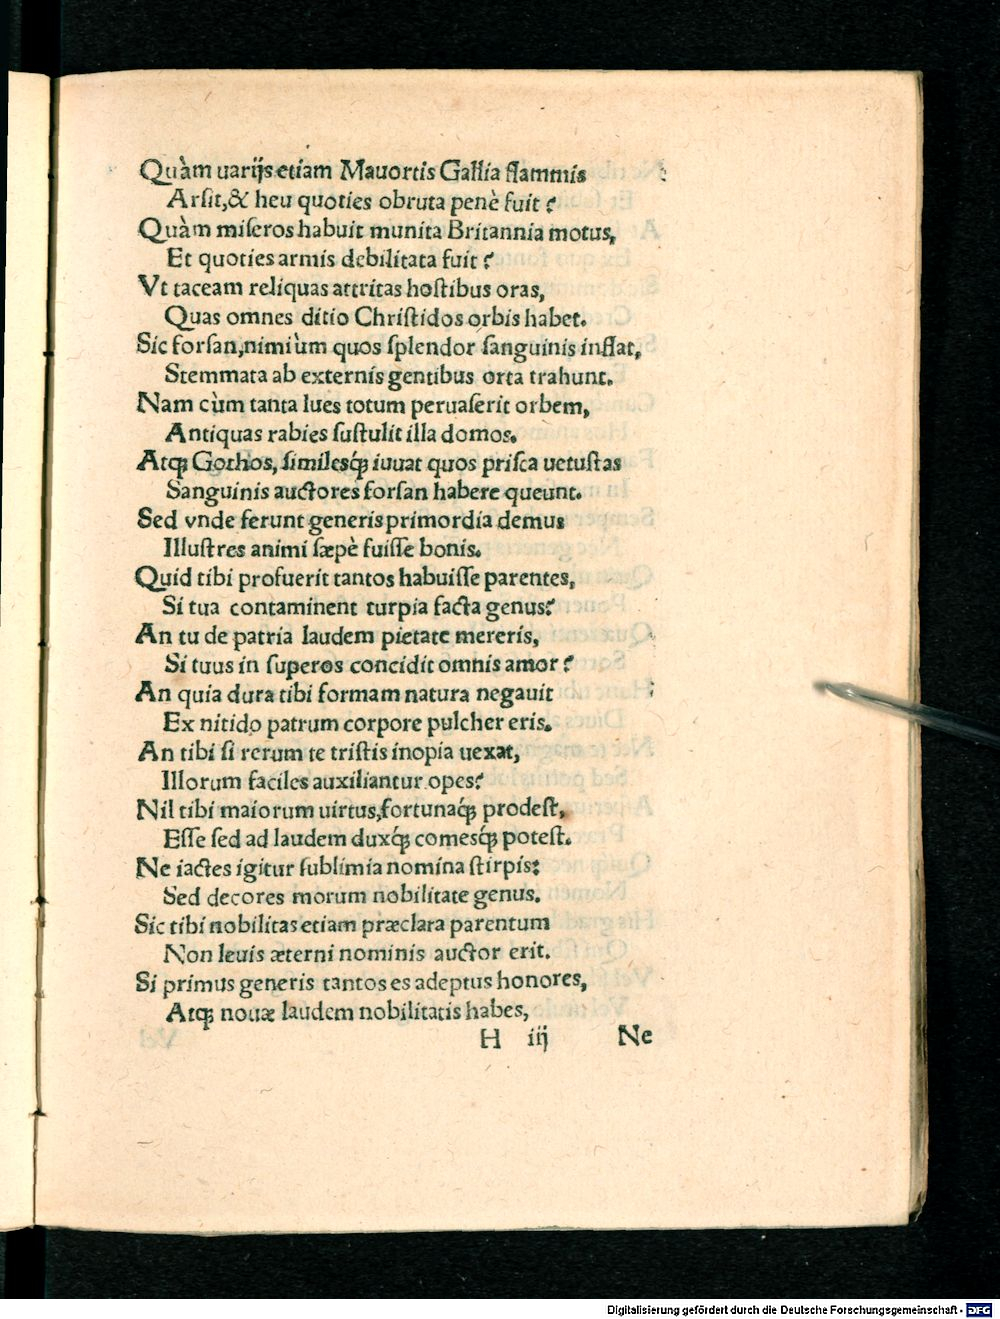 Quàm uarijs etiam Mauortis Gallia flammis
Arſit,& heu quoties obruta penè fuit?
Quàm miſeros habuit munita Britannia motus,
Et quoties armis debilitata fuit?
Vt taceam reliquas attritas hoſtibus oras,
Quas omnes ditio Chriſtidos orbis habet.
Sic forſan,nimiùm quos ſplendor ſanguinis inflat,
Stemmata ab externis gentibus orta trahunt.
Nam cùm tanta lues totum peruaſerit orbem,
Antiquas rabies ſuſtulit illa domos.
Atq; Gothos, ſimilesq́; iuuat quos priſca uetuſtas
Sanguinis auctores forſan habere queunt.
Sed vnde ferunt generis primordia demus
Illuſtres animi ſæpè fuiſſe bonis.
Quid tibi profuerit tantos habuiſſe parentes,
Si tua contaminent turpia facta genus?
An tu de patria laudem pietate mereris,
Si tuus in ſuperos concidit omnis amor?
An quia dura tibi formam natura negauit
Ex nitido patrum corpore pulcher eris.
An tibi ſi rerum te triſtis inopia uexat,
Illorum faciles auxiliantur opes?
Nil tibi maiorum uirtus,fortunaq́; prodeſt,
Eſſe ſed ad laudem duxq́; comesq́; poteſt.
Ne iactes igitur ſublimia nomina ſtirpis:
Sed decores morum nobilitate genus.
Sic tibi nobilitas etiam præclara parentum
Non leuis æterni nominis auctor erit.
Si primus generis tantos es adeptus honores,
Atq; nouæ laudem nobilitatis habes,
H iij Ne
Digitalisierung gefördert durch die Deutsche Forschungsgemeinschaft - DFG